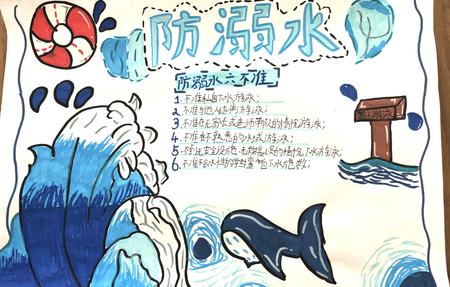 防溺水
防溺水六不准
1.不准私自下水游泳;
2.不准与他人结伴游泳;
3.不准在无家长或老师带队的情况游泳;
4.不准在不熟悉的水域游泳;
5.不准在无安全设施、无救援人员的情况下水游泳;
6.不准不会水性的学生擅自下水施救;